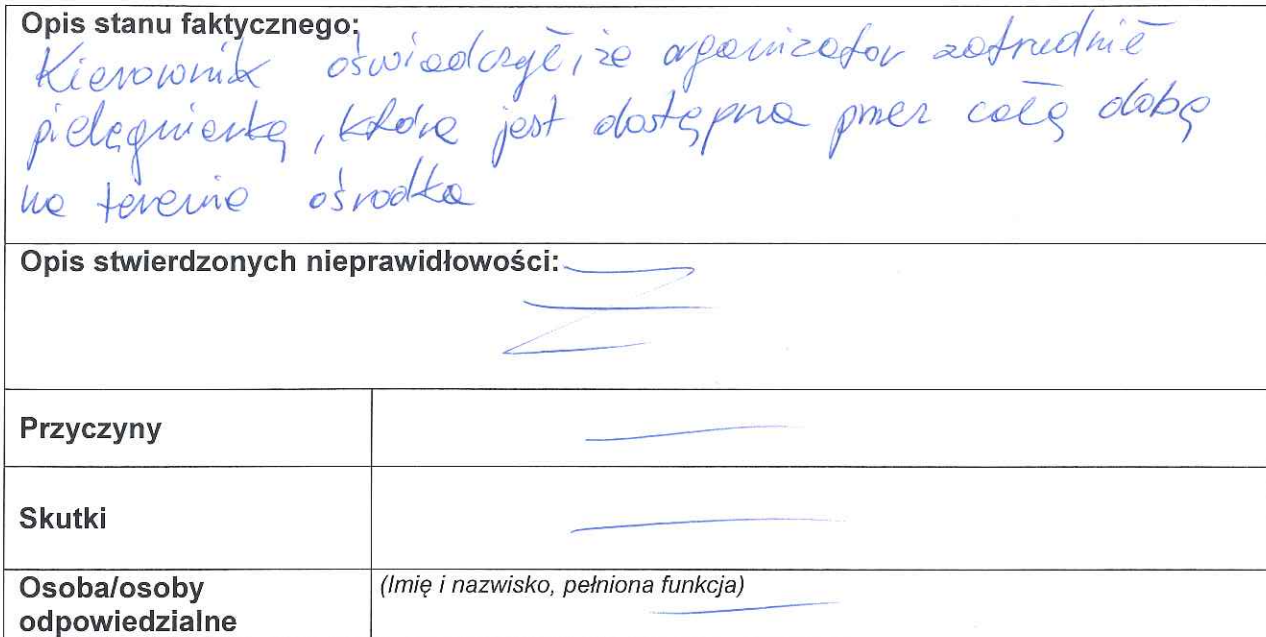 Opis stanu faktycznego:
Kierownik oświadczył, że organizator zatrudnił
pielęgniarkę, która jest dostępna przez całą dobę
na terenie ośrodka
Opis stwierdzonych nieprawidłowości:
Przyczyny
Skutki
Osoba/osoby
odpowiedzialne
(Imię i nazwisko, pełniona funkcja)